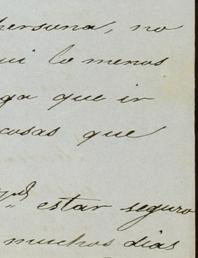 persona, no
lo menos
ga que ir
cosas que
estar seguro
muchos dias